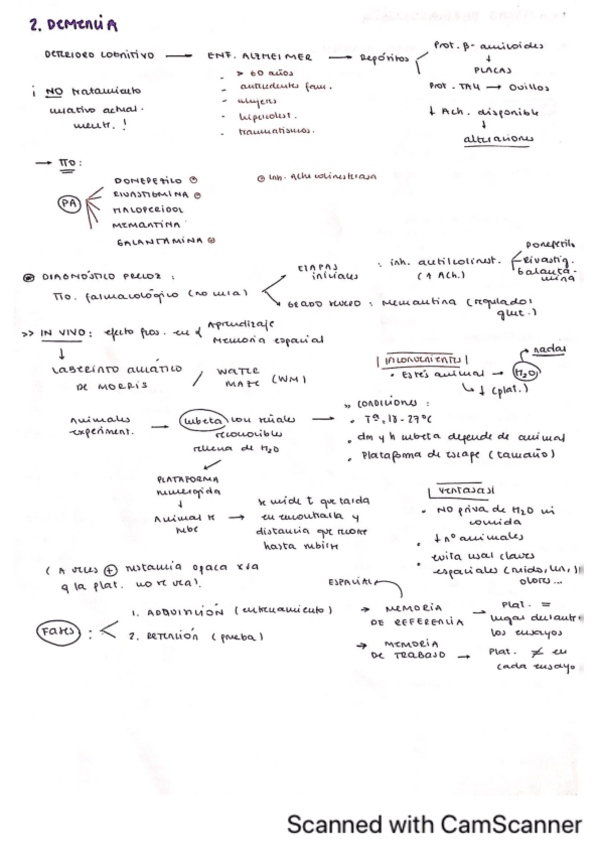 2. DEMENCIA
DETERIORO COGNITIVO → ENF. ALZHEIMER → Depósitos
Prot. β-amiloides
↓
PLACAS
Prot. TAU → Ovillos
↓ Ach. disponible
↓
alteraciones
¡ NO tratamiento
curativo actual-
mente!
- > 60 años
- antecedentes fam.
- mujeres
- hipercolest.
- traumatismos.
→ TTO:
PA
DONEPEZILO
RIVASTIGMINA
HALOPERIDOL
MEMANTINA
GALANTAMINA
Inh. Ache colinesterasa
DIAGNÓSTICO PRECOZ:
TTO. farmacológico (no cura)
ETAPAS
iniciales
: inh. acetilcolinest.
(↑ Ach.)
Donepezilo
Rivastig.
Galanta-
mina
GRADO SEVERO: Memantina (regulador
glut.)
>> IN VIVO: efecto fcos. en el
Aprendizaje
Memoria espacial
↓
LABERINTO ACUÁTICO
DE MORRIS
/ WATER
MAZE (WM)
INCONVENIENTES
• Estrés animal → H2O
nadar
↳ ↓ (plat.)
Animales
experiment.
→ Cubeta con señales
reconocibles
rellena de H2O
→
>> CONDICIONES:
• Tª, 18-27ºC
• dm y h cubeta depende de animal
• Plataforma de escape (tamaño)
PLATAFORMA
sumergida
↓
Animal se
sube
→ se mide t que tarda
en encontrarla y
distancia que recorre
hasta subirse
VENTAJAS
• NO priva de H2O ni
comida
• ↓ nº animales
• evita usar claves
espaciales (ruido, luz,
olores...
(A veces ⊕ sustancia opaca xa
q la plat. no se vea).
FASES:
1. ADQUISICIÓN (entrenamiento)
2. RETENCIÓN (prueba)
ESPACIAL
→ MEMORIA
DE REFERENCIA
→ Plat. =
lugar durante
los ensayos
→ MEMORIA
DE TRABAJO
→ Plat. ≠ en
cada ensayo
Scanned with CamScanner